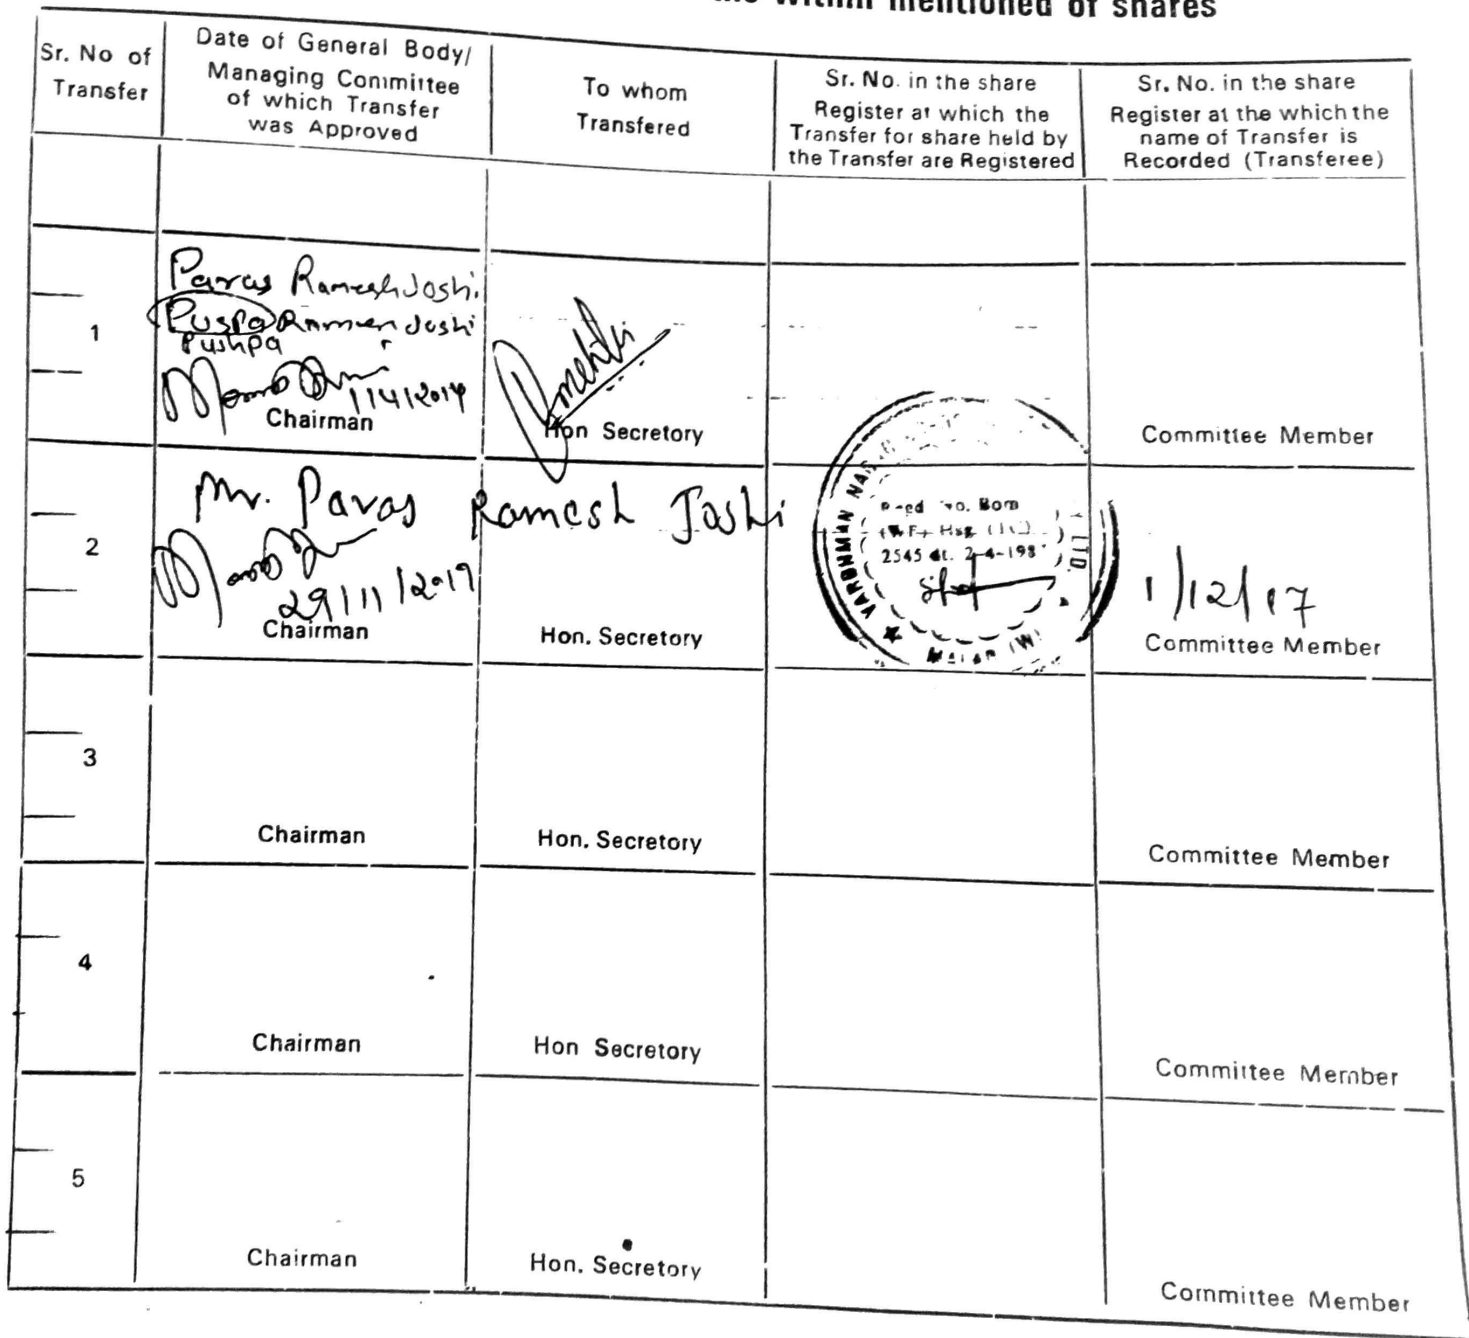 within mentioned of shares
Sr. No of
Transfer
Date of General Body/
Managing Committee
of which Transfer
was Approved
To whom
Transfered
Sr. No. in the share
Register at which the
Transfer for share held by
the Transfer are Registered
Sr. No. in the share
Register at the which the
name of Transfer is
Recorded (Transferee)
1
Paras Ramesh Joshi.
Puspa Ramesh Joshi
Pushpa
1/4/2014
Chairman
Hon Secretary
Committee Member
2
Mr. Paras Ramesh Joshi
29/11/2017
Chairman
Hon. Secretary
VARDHMAN NAG
LTD.
Regd No. Bom
(W F) Hsg
2545 dt. 2-4-198
MALAD (W)
1/12/17
Committee Member
3
Chairman
Hon. Secretary
Committee Member
4
Chairman
Hon Secretary
Committee Member
5
Chairman
Hon. Secretary
Committee Member